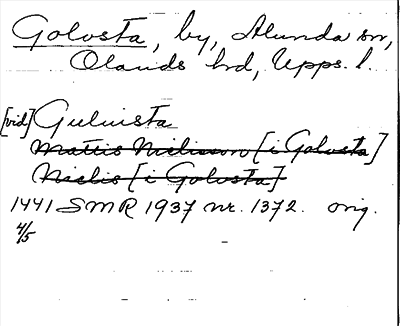 Golvsta, by, Alunda sn,
Olands hd, Upps. l.
[vid] Guluista
Mattis Nielisson [i Golvsta]
Nielis [i Golvsta]
1441 SMR 1937 nr. 1372. orig.
4/5